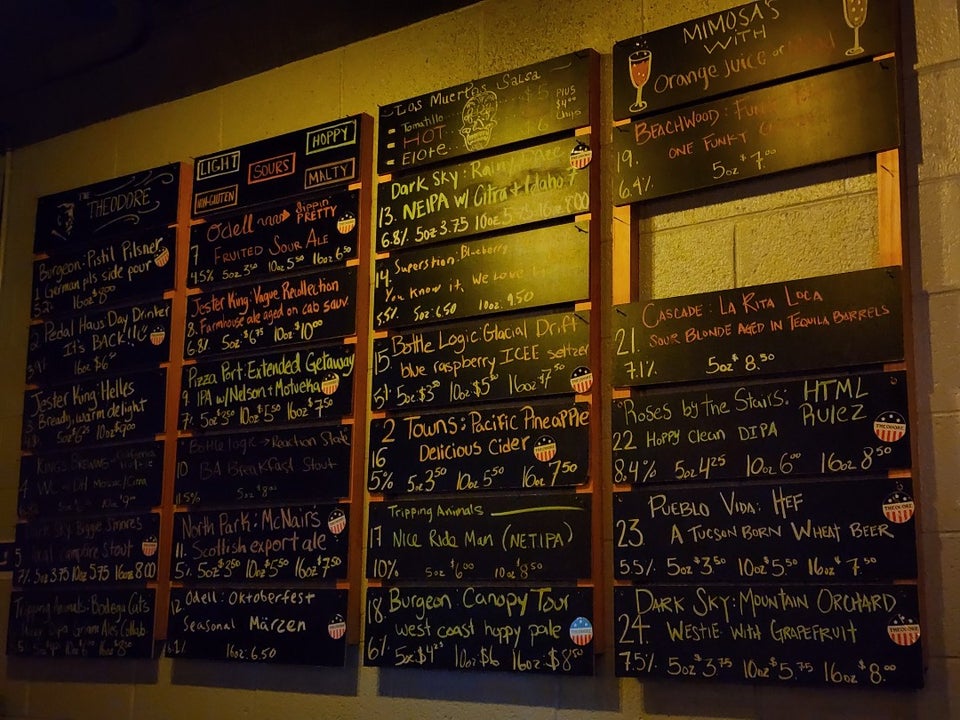 THE
THEODORE
Burgeon: Pistil Pilsner
1 German pils side pour
16oz $8.00
Pedal Haus Day Drinker
2 It's BACK!!!
16oz $6
Jester King Helles
3. Bready, warm delight
5oz 16oz $9.00
Kings Brewing
4 WC
Dark Sky: Biggie S'mores
5 campfire stout
7% 5oz 3.75 10oz 5.75 16oz 8.00
Tripping Animals: Bodega Cats
Ales Collab
LIGHT
HOPPY
SOURS
NON-GLUTEN
MALTY
Odell Sippin' PRETTY
7 FRUITED SOUR ALE
4.5% 5oz 3.50 10oz 5.50 16oz 6.50
Jester King: Vague Recollection
8. Farmhouse ale aged on cab sauv.
6.8% 5oz $6.75 10oz $10.00
Pizza Port: Extended Getaway
9. IPA w/Nelson + Motueka
7% 5oz $3.50 10oz $5.50 16oz $7.50
Bottle Logic → Reaction State
10 BA Breakfast Stout
5oz $8.00
North Park: McNair's
11. Scottish export ale
5% 5oz $3.50 10oz $5.50 16oz $7.50
12 Odell: Oktoberfest
Seasonal Märzen
16oz 6.50
Los Muertos Salsa
Tomatillo $5 PLUS
HOT $4.00
Elote chips
Dark Sky: Rainy
13. NEIPA w/ Citra + Idaho 7
6.8% 5oz 3.75 10oz 5.75 16oz 8.00
14. Superstion: Blueberry
You know it, We love it
5.5% 5oz 6.50 10oz 9.50
Bottle Logic: Glacial Drift
15 blue raspberry ICEE seltzer
5% 5oz $3.50 10oz $5.50 16oz $7.50
2 Towns: Pacific Pineapple
16 Delicious Cider
5% 5oz 3.50 10oz 5.50 16oz 7.50
Tripping Animals
17 Nice Ride Man (NETIPA)
10% 5oz $6.00 10oz $8.50
18. Burgeon: Canopy Tour
west coast hoppy pale
6% 5oz $4.25 10oz $6 16oz $8.50
MIMOSA'S
WITH
Orange Juice or
BEACHWOOD:
19. ONE FUNKY
6.4% 5oz $7.00
CASCADE: LA RITA LOCA
21. SOUR BLONDE AGED IN TEQUILA BARRELS
7.1% 5oz $8.50
Roses by the Stairs: HTML
RULEZ
22 Hoppy Clean DIPA
8.4% 5oz 4.25 10oz 6.00 16oz 8.50
PUEBLO VIDA: HEF
23. A TUCSON BORN WHEAT BEER
5.5% 5oz $3.50 10oz $5.50 16oz $7.50
DARK SKY: MOUNTAIN ORCHARD
24. WESTIE WITH GRAPEFRUIT
7.5% 5oz $3.75 10oz $5.75 16oz $8.00